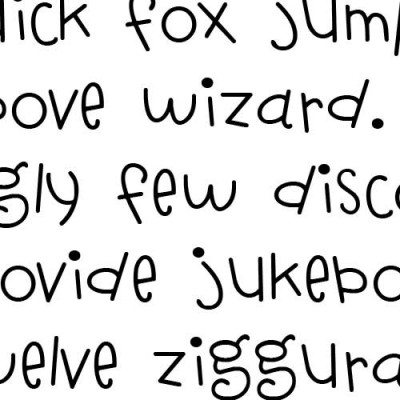 uick fox jump
bove wizard.
gly few disco
ovide jukebo
welve ziggura